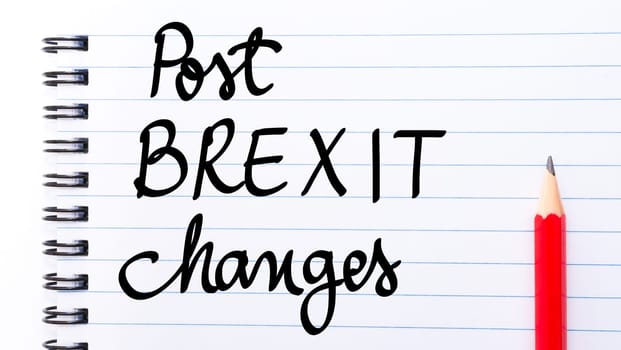 Post
BREXIT
changes